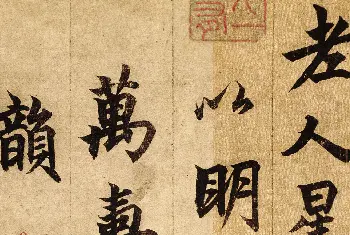 老人星
以明
萬壽
韻